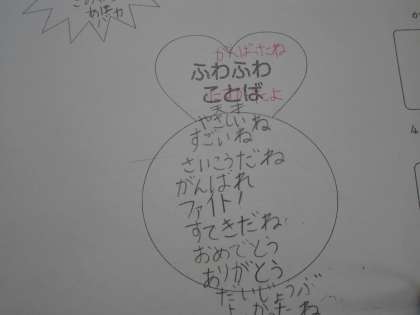 がんばったね
ふわふわ
ことば
天才
やさしいね
すごいね
さいこうだね
がんばれ
ファイト!
すてきだね
おめでとう
ありがとう
だいじょうぶ
よかったね